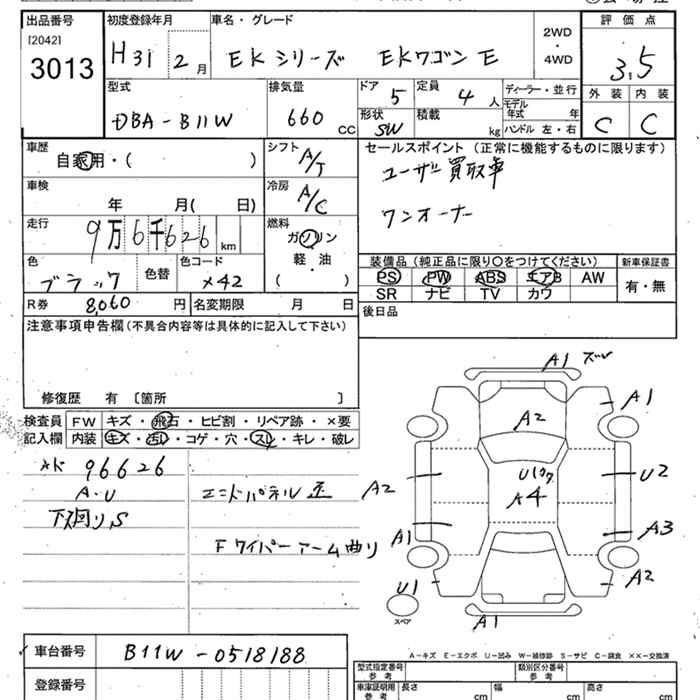 出品番号 初度登録年月 車名・グレード 評価点
[2042]
3013 H31 2月 EKシリーズ EKワゴン E 2WD・4WD 3.5
型式 排気量 ドア 5 定員 4人 ディーラー・並行 外装 内装
モデル年式 年
DBA-B11W 660 CC 形状 SW 積載 kg ハンドル 左・右 C C
車歴 シフト セールスポイント (正常に機能するものに限ります)
自家用・( ) A/T ユーザー買取車
車検 冷房
年 月( 日) A/C ワンオーナー
走行 燃料
9万6千626km ガソリン
軽・油
( )
装備品 (純正品に限り○をつけてください) 新車保証書
色 色替 色コード PS PW ABS エアB AW 有・無
ブラック X42 SR ナビ TV カワ
R券 8,060円 名変期限 月 日 後日品
注意事項申告欄 (不具合内容等は具体的に記入して下さい)
修復歴 有 〔箇所 〕
検査員 FW キズ・飛石・ヒビ割・リペア跡・×要
記入欄 内装 キズ・汚レ・コゲ・穴・スレ・キレ・破レ
96626
A・U エンドパネル
下廻りS
Fワイパーアーム曲り
A1 ズレ
A1
A2
Uワク
A4
U2
A2
A1
A3
A2
U1
スペア
A1
A-キズ E-エクボ U-凹み W-補修跡 S-サビ C-腐食 ××-交換済
車台番号 B11W-0518188
登録番号
型式指定番号 参考 類別区分番号 参考
車庫証明用 参考 長さ cm 幅 cm 高さ cm